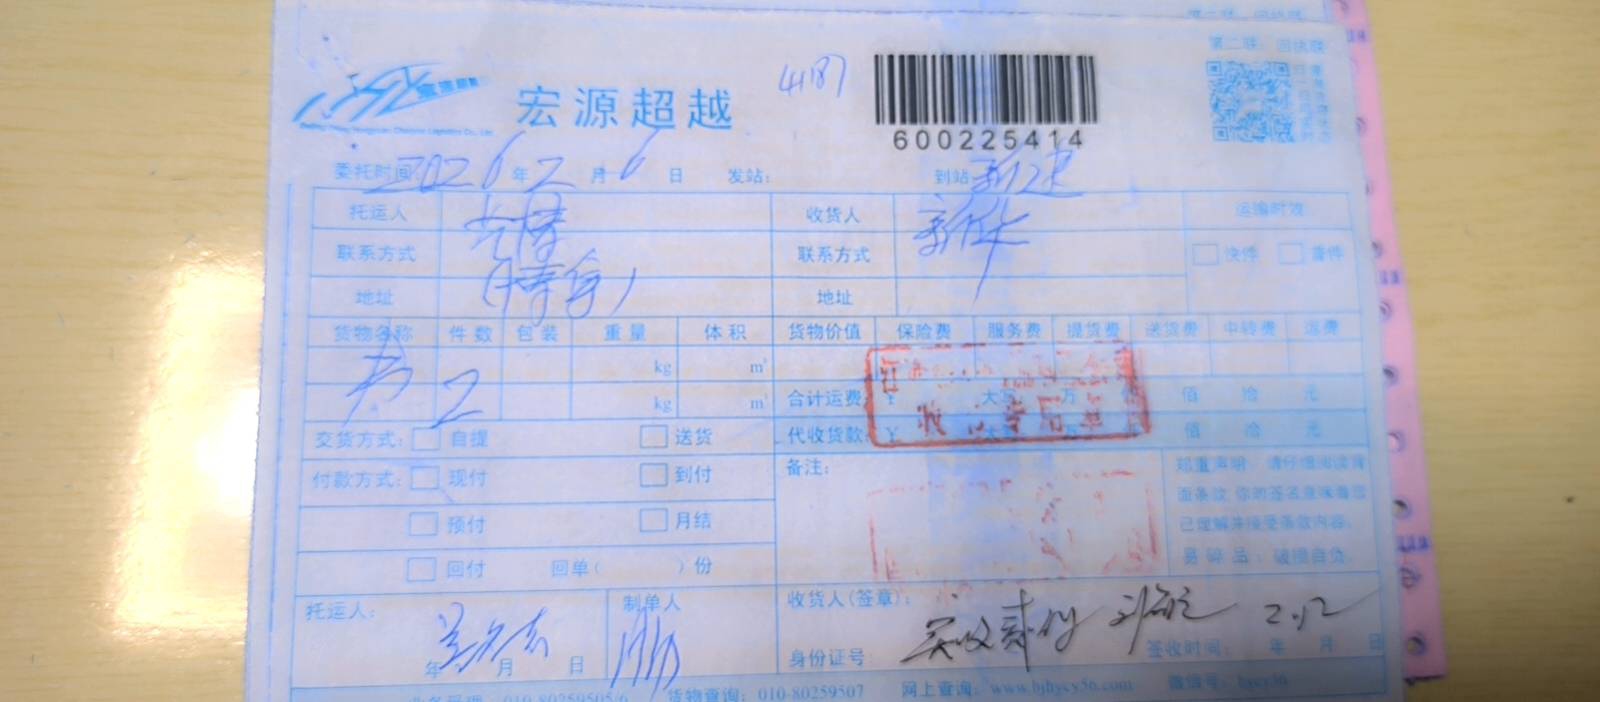 第二联：回执联
宏源超越
4187
600225414
委托时间 2026 年 2 月 6 日 发站： 到站
托运人 收货人 新华 运输时效
联系方式 联系方式 快件 普件
地址 地址
货物名称 件数 包装 重量 体积 货物价值 保险费 服务费 提货费 送货费 中转费 运费
kg m³
书 2 kg m³ 合计运费： ¥ 大写 万 仟 佰 拾 元
交货方式： 自提 送货 代收货款： ¥ 大写 万 仟 佰 拾 元
付款方式： 现付 到付 备注：
郑重声明：请仔细阅读背
面条款，你的签名意味着您
已理解并接受条款内容。
易碎品：破损自负。
预付 月结
回付 回单（ ）份
托运人： 制单人 收货人（签章）：
实收 2.12
年 月 日 身份证号 签收时间： 年 月 日
业务受理：010-80259505/6 货物查询：010-80259507 网上查询：www.bjhycy56.com 微信号：hycy56